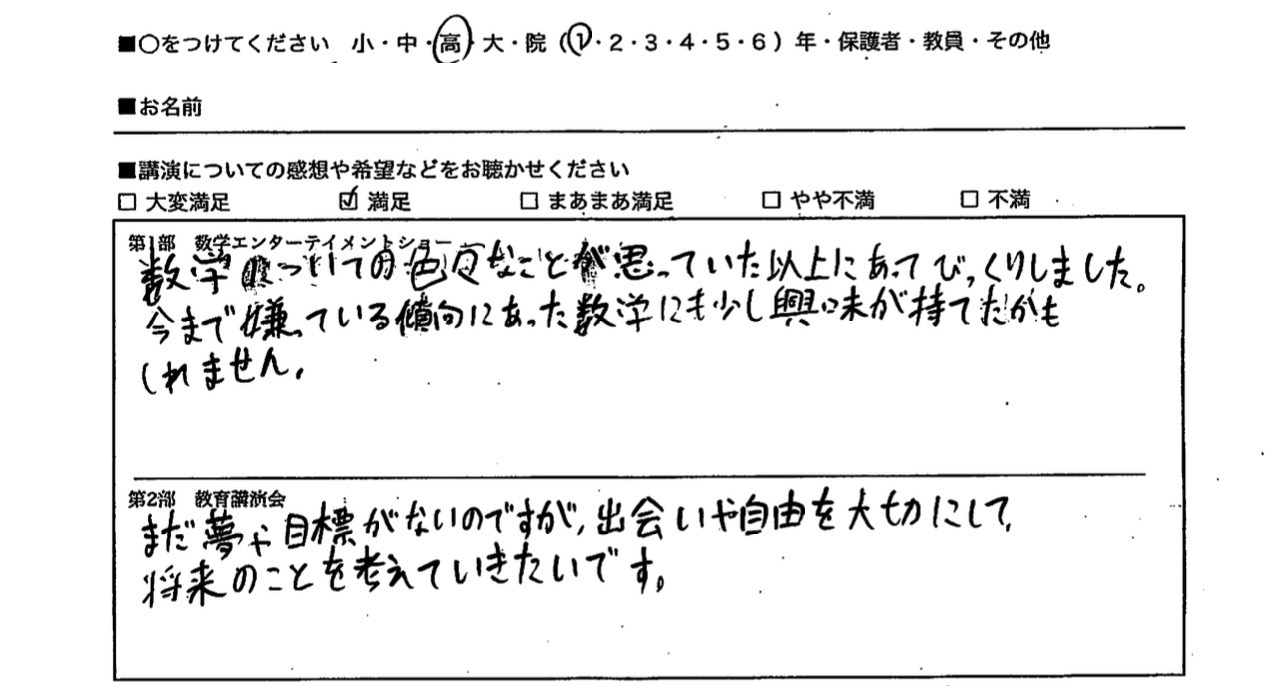 ■○をつけてください 小・中・高・大・院（1・2・3・4・5・6）年・保護者・教員・その他
■お名前
■講演についての感想や希望などをお聴かせください
□ 大変満足 ☑ 満足 □ まあまあ満足 □ やや不満 □ 不満
第1部 数学エンターテイメントショー
数学についての色々なことが思っていた以上にあってびっくりしました。
今まで嫌っている傾向にあった数学にも少し興味が持てたかも
しれません。
第2部 教育講演会
まだ夢や目標がないのですが、出会いや自由を大切にして、
将来のことを考えていきたいです。